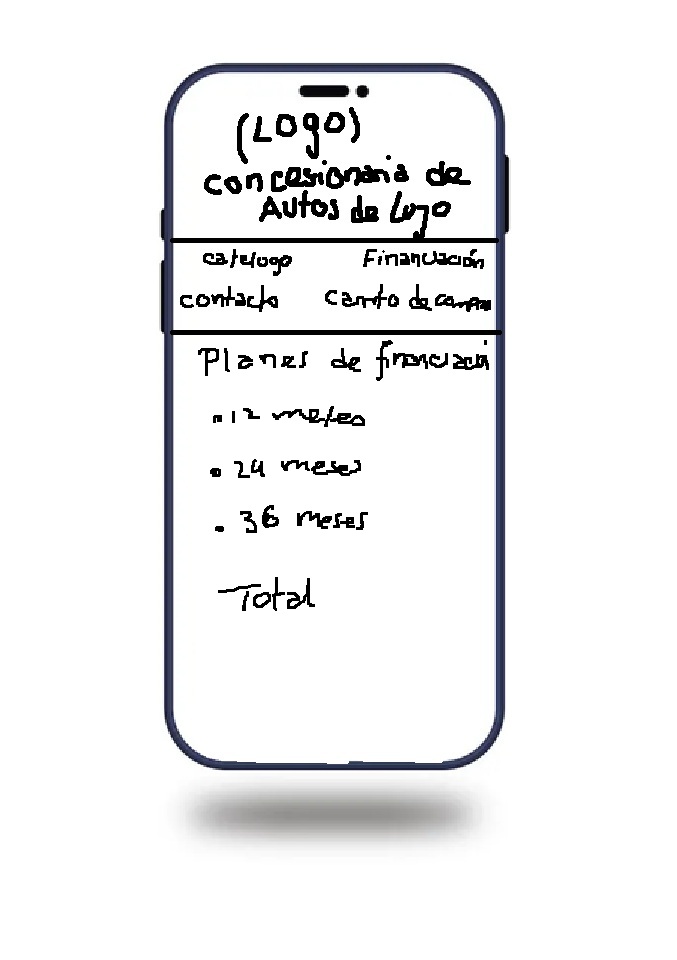 (Logo)
concesionaria de
Autos de Lujo
catalogo Financiación
contacto Carrito de compras
Planes de financiación
. 12 meses
. 24 meses
. 36 meses
Total